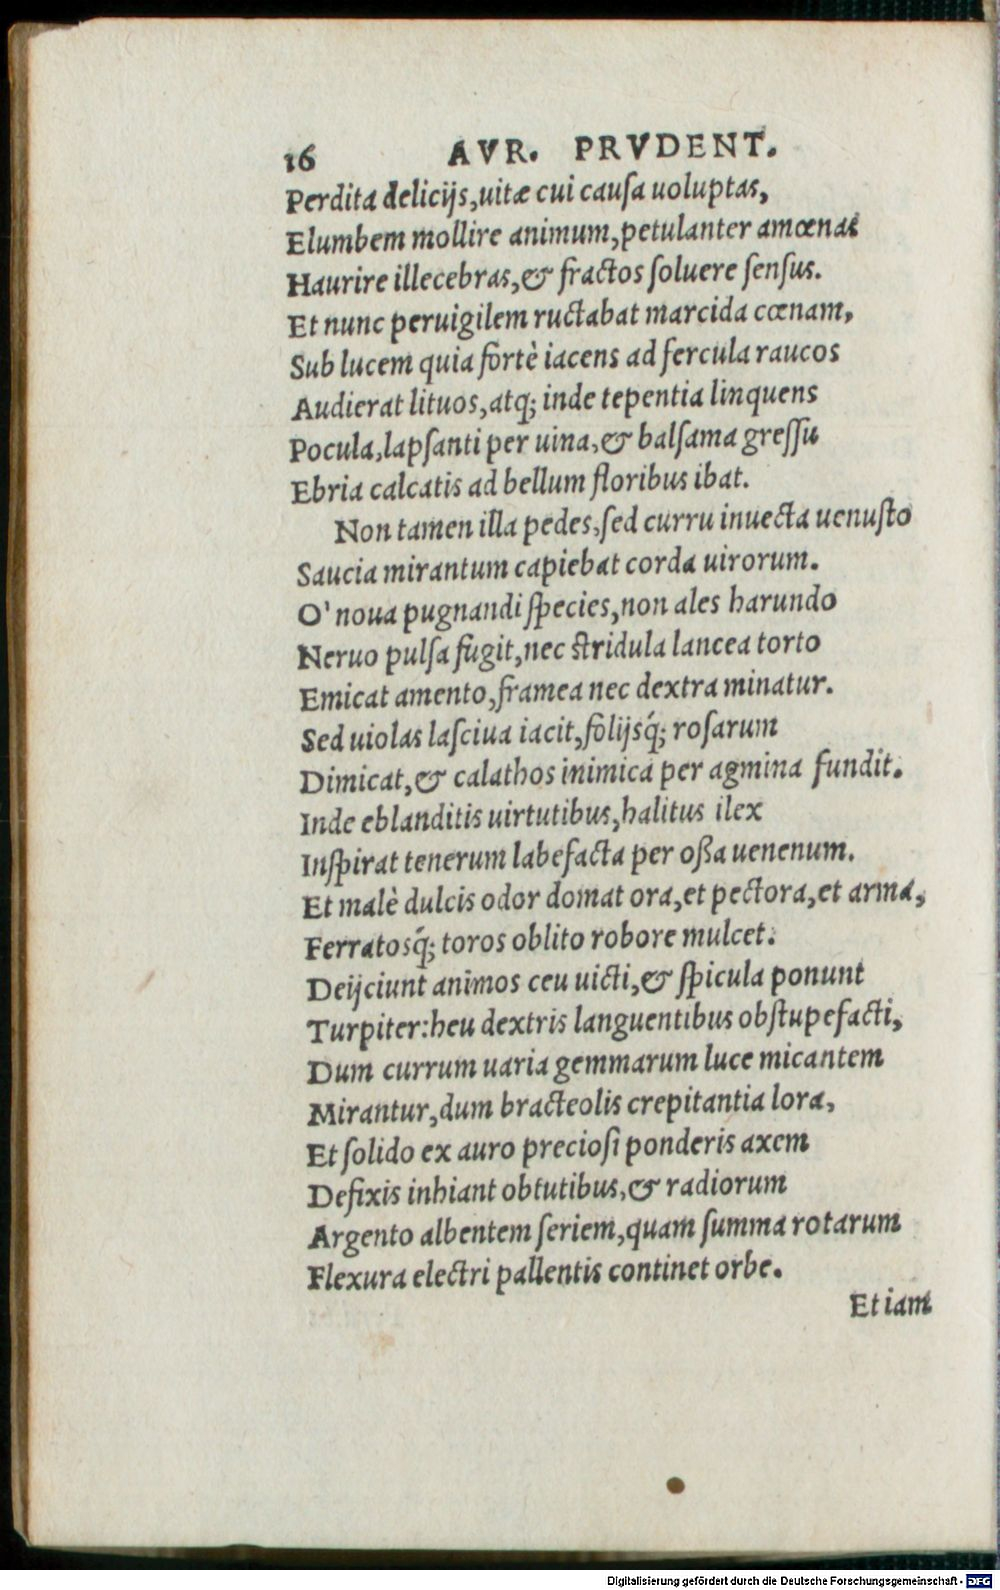 16 AVR. PRVDENT.
Perdita delicijs,uitæ cui cauſa uoluptas,
Elumbem mollire animum,petulanter amœnas
Haurire illecebras,& fractos ſoluere ſenſus.
Et nunc peruigilem ructabat marcida cœnam,
Sub lucem quia fortè iacens ad fercula raucos
Audierat lituos,atq; inde tepentia linquens
Pocula,lapſanti per uina,& balſama greſſu
Ebria calcatis ad bellum floribus ibat.
Non tamen illa pedes,ſed curru inuecta uenuſto
Saucia mirantum capiebat corda uirorum.
O' noua pugnandi ſpecies,non ales harundo
Neruo pulſa fugit,nec stridula lancea torto
Emicat amento,framea nec dextra minatur.
Sed uiolas laſciua iacit,folijsq́; roſarum
Dimicat,& calathos inimica per agmina fundit.
Inde eblanditis uirtutibus,halitus ilex
Inſpirat tenerum labefacta per oßa uenenum.
Et malè dulcis odor domat ora,et pectora,et arma,
Ferratosq́; toros oblito robore mulcet.
Deijciunt animos ceu uicti,& ſpicula ponunt
Turpiter:heu dextris languentibus obſtupefacti,
Dum currum uaria gemmarum luce micantem
Mirantur,dum bracteolis crepitantia lora,
Et ſolido ex auro precioſi ponderis axem
Defixis inhiant obtutibus,& radiorum
Argento albentem ſeriem,quam ſumma rotarum
Flexura electri pallentis continet orbe.
Et iam
Digitalisierung gefördert durch die Deutsche Forschungsgemeinschaft - DFG